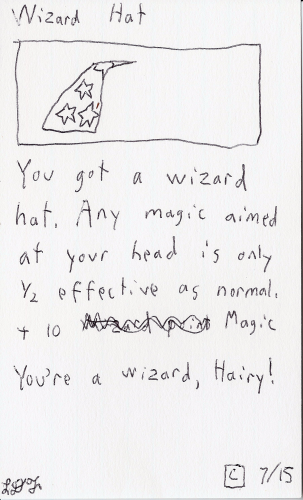 Wizard Hat
You got a wizard
hat. Any magic aimed
at your head is only
1/2 effective as normal.
+ 10 Magic
You're a wizard, Hairy!
C 7/15